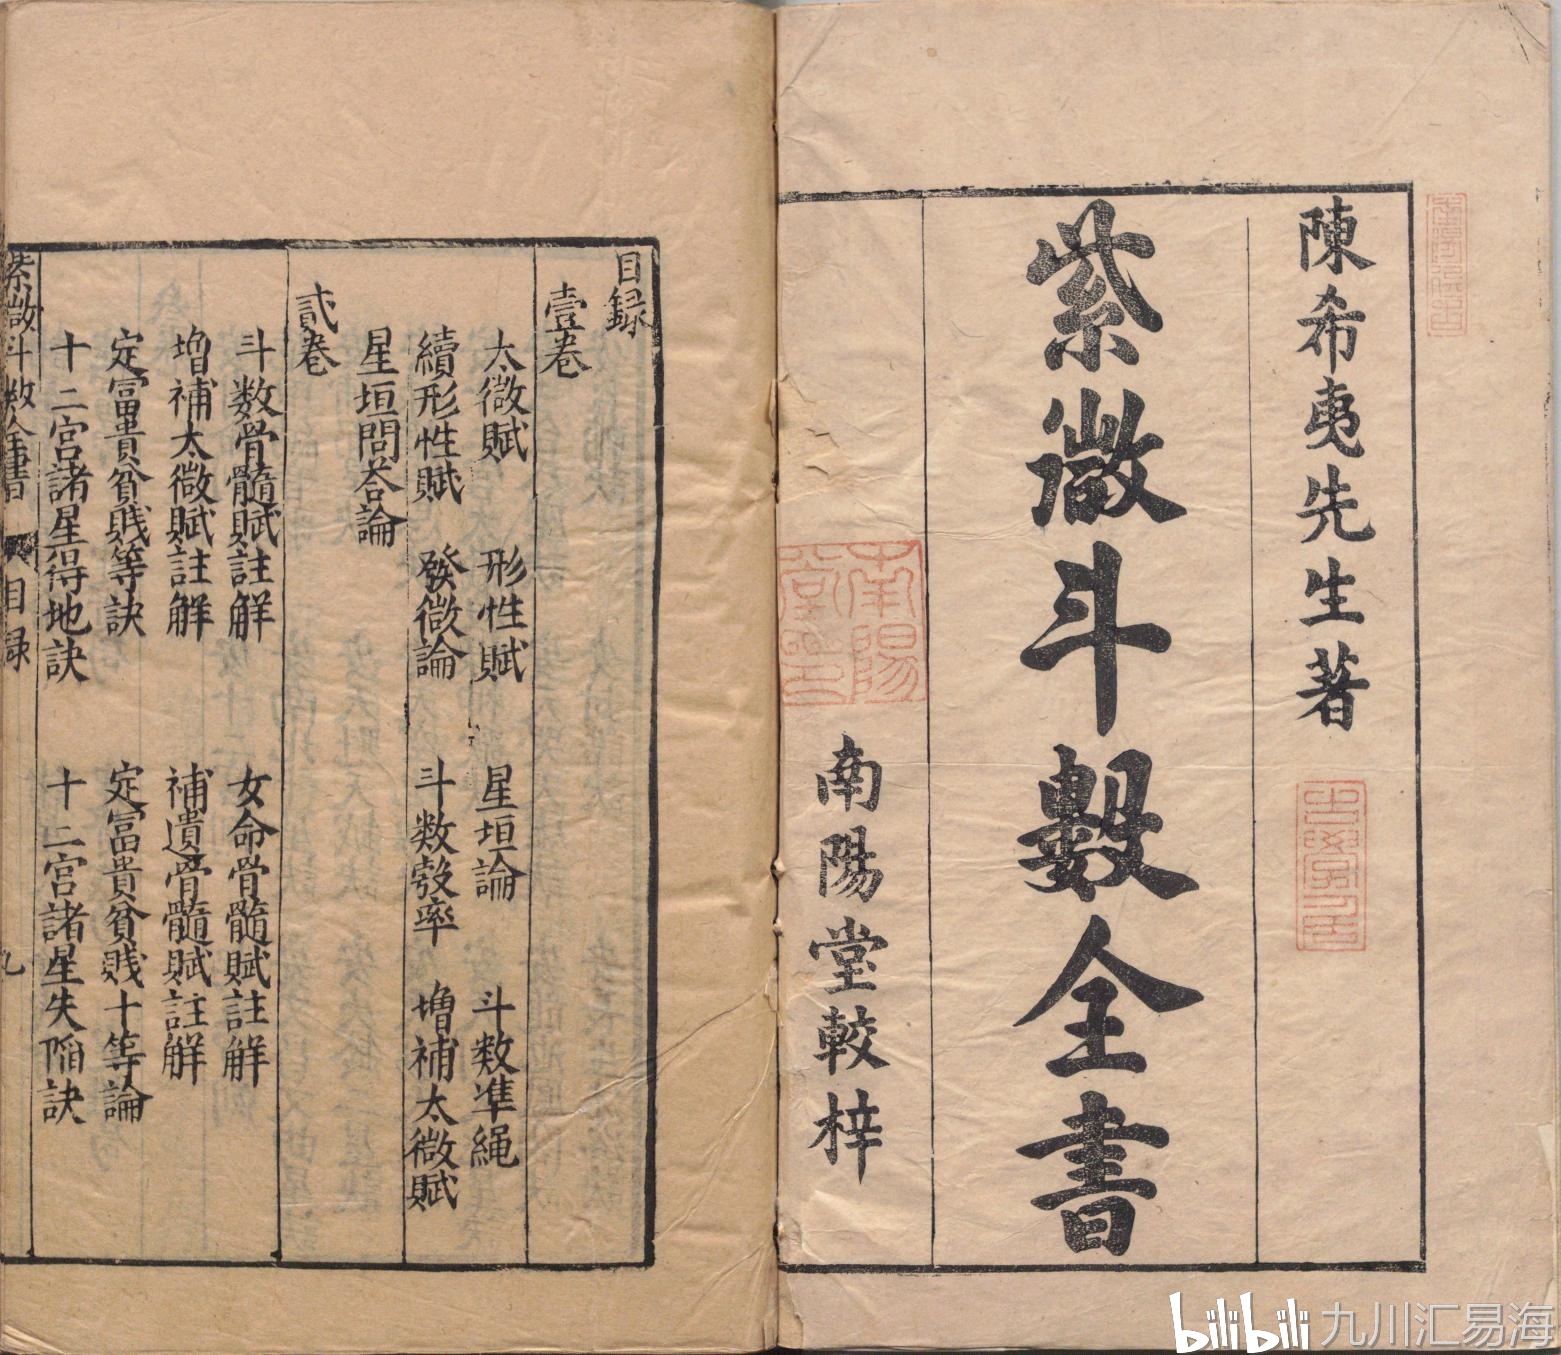 陳希夷先生著
紫微斗數全書
南陽堂較梓
南陽堂
目録
壹卷
太微賦 形性賦 星垣論 斗数準繩
續形性賦 發微論 斗数彀率 增補太微賦
星垣問荅論
貳卷
斗数骨髓賦註解 女命骨髓賦註解
増補太微賦註解 補遺骨髓賦註解
定富貴貧賤等訣 定富貴貧賤十等論
十二宮諸星得地訣 十二宮諸星失陷訣
紫微斗数全書 目録 九
bilibili 九川汇易海